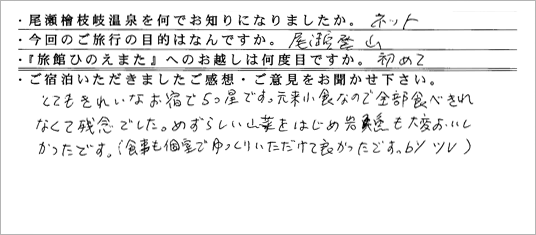 ・尾瀬檜枝岐温泉を何でお知りになりましたか。ネット
・今回のご旅行の目的はなんですか。尾瀬登山
・『旅館ひのえまた』へのお越しは何度目ですか。初めて
・ご宿泊いただきましたご感想・ご意見をお聞かせ下さい。
とてもきれいなお宿で5つ星です。元来小食なので全部食べきれ
なくて残念でした。めずらしい山菜をはじめ岩魚も大変おいし
かったです。(食事も個室でゆっくりいただけて良かったです。by ツレ)